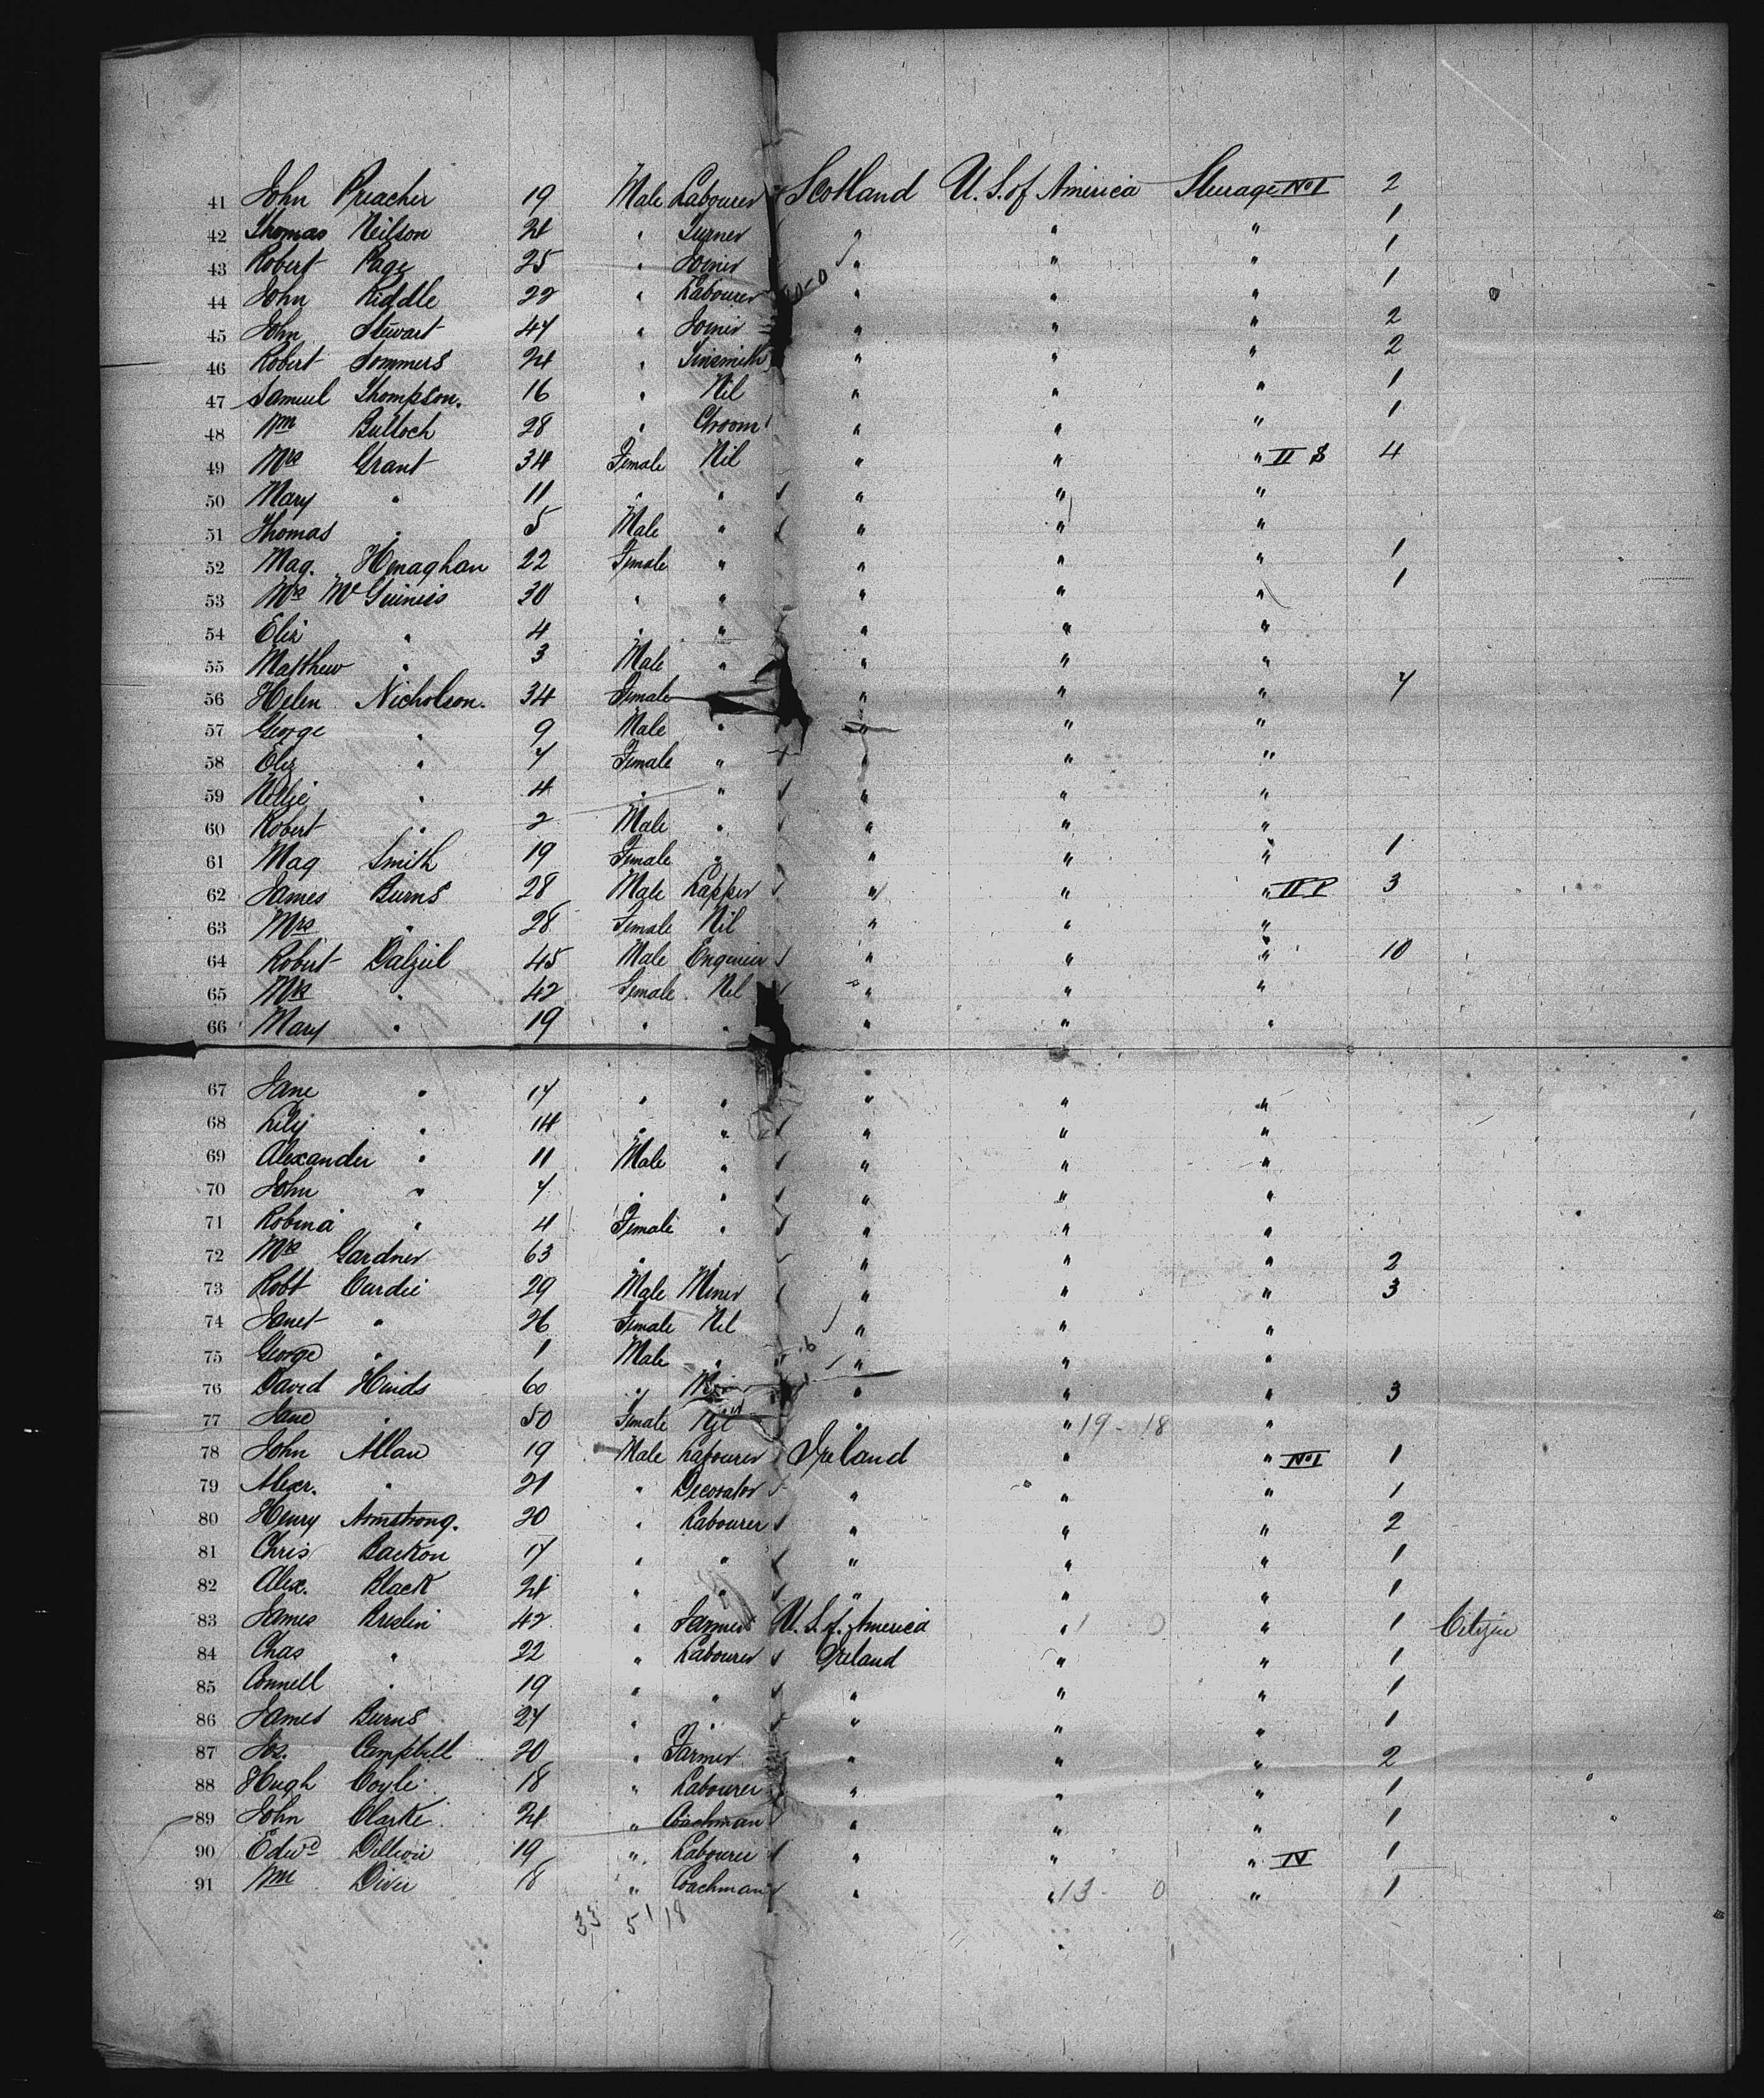 41 John Preacher 19 Male Labourer Scotland U.S. of America Steerage No I 2
42 Thomas Neilson 24 " Turner " " " 1
43 Robert Page 25 " Joiner " " " 1
44 John Riddle 22 " Labourer " " " 1
45 John Stewart 47 " Joiner " " " 2
46 Robert Sommers 24 " Tinsmith " " " 2
47 Samuel Thompson. 16 " Nil " " " 1
48 Wm Bulloch 28 " Groom " " " 1
49 Mrs Grant 34 Female Nil " " " II S 4
50 Mary " 11 " " " " "
51 Thomas " 5 Male " " " "
52 Mag. Henaghan 22 Female " " " " 1
53 Mrs McGuiness 30 " " " " " 1
54 Eliz " 4 " " " " "
55 Matthew " 3 Male " " " "
56 Helen Nicholson. 34 Female " " " 7
57 George " 9 Male " " " "
58 Eliz " 7 Female " " " "
59 Nellie " 4 " " " " "
60 Robert " 2 Male " " " "
61 Mag Smith 19 Female " " " " 1
62 James Burns 28 Male Lapper " " " II P 3
63 Mrs " 28 Female Nil " " "
64 Robert Dalziel 45 Male Engineer " " " 10
65 Mrs " 42 Female Nil " " "
66 Mary " 19 " " " " "
67 Jane " 17 " " " " "
68 Lily " 14 " " " " "
69 Alexander " 11 Male " " " "
70 John " 7 " " " " "
71 Robina " 4 Female " " " "
72 Mrs Gardner 63 " " " " " 2
73 Robt Curdie 29 Male Miner " " " 3
74 Janet " 26 Female Nil " " "
75 George " 1 Male " " " "
76 David Hinds 60 " " " " 3
77 Jane " 50 Female Nil " " 19 - 18 "
78 John Allan 19 Male Labourer Ireland " " No I 1
79 Alexr. " 21 " Decorator " " " 1
80 Henry Armstrong. 20 " Labourer " " " 2
81 Chris Backon 17 " " " " " 1
82 Alex. Black 24 " " " " " 1
83 James Breslin 42 " Farmer U.S. of America " 1 0 " 1 Citizen
84 Chas " 22 " Labourer Ireland " " 1
85 Connell " 19 " " " " " 1
86 James Burns 27 " " " " " 1
87 Jos. Campbell 20 " Farmer " " " 2
88 Hugh Coyle 18 " Labourer " " " 1
89 John Clarke 24 " Coachman " " " 1
90 Edwd 19 " Labourer " " " IV 1
91 Wm Diver 18 " Coachman " " 13 - 0 " 1
33 51 18